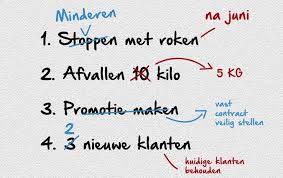 Minderen
na juni
1. Stoppen met roken
2. Afvallen 10 kilo
5 KG
3. Promotie maken
vast
contract
veilig stellen
2
4. 3 nieuwe klanten
huidige klanten
behouden